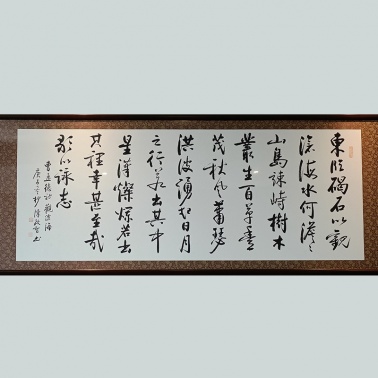 東臨碣石以觀
滄海水何澹〻
山島竦峙樹木
叢生百草豐
茂秋風蕭瑟
洪波湧起日月
之行若出其中
星漢燦爛若出
其裡幸甚至哉
歌以詠志
曹孟德詩觀滄海
庚子 書